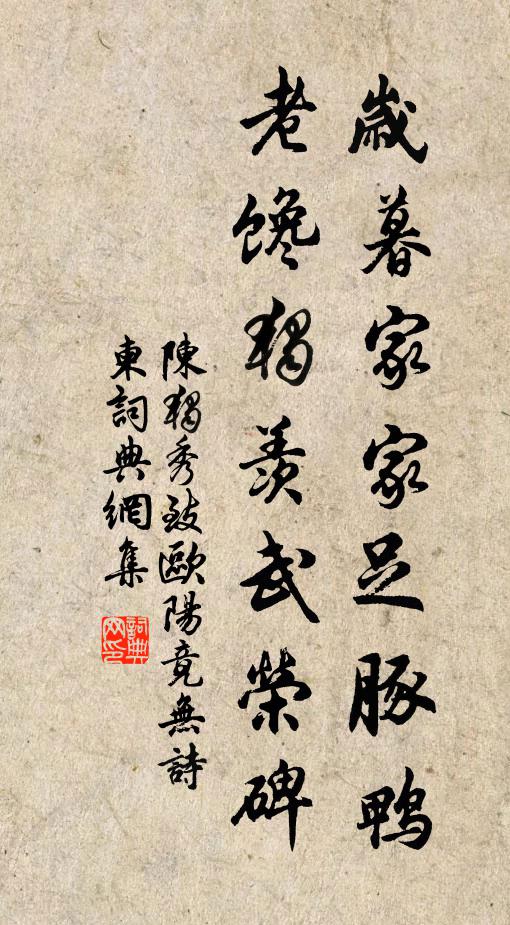 歲暮家家足豚鴨
老馋獨羨武榮碑
陳獨秀致歐陽竟無詩
東詞典網集
詞典网印